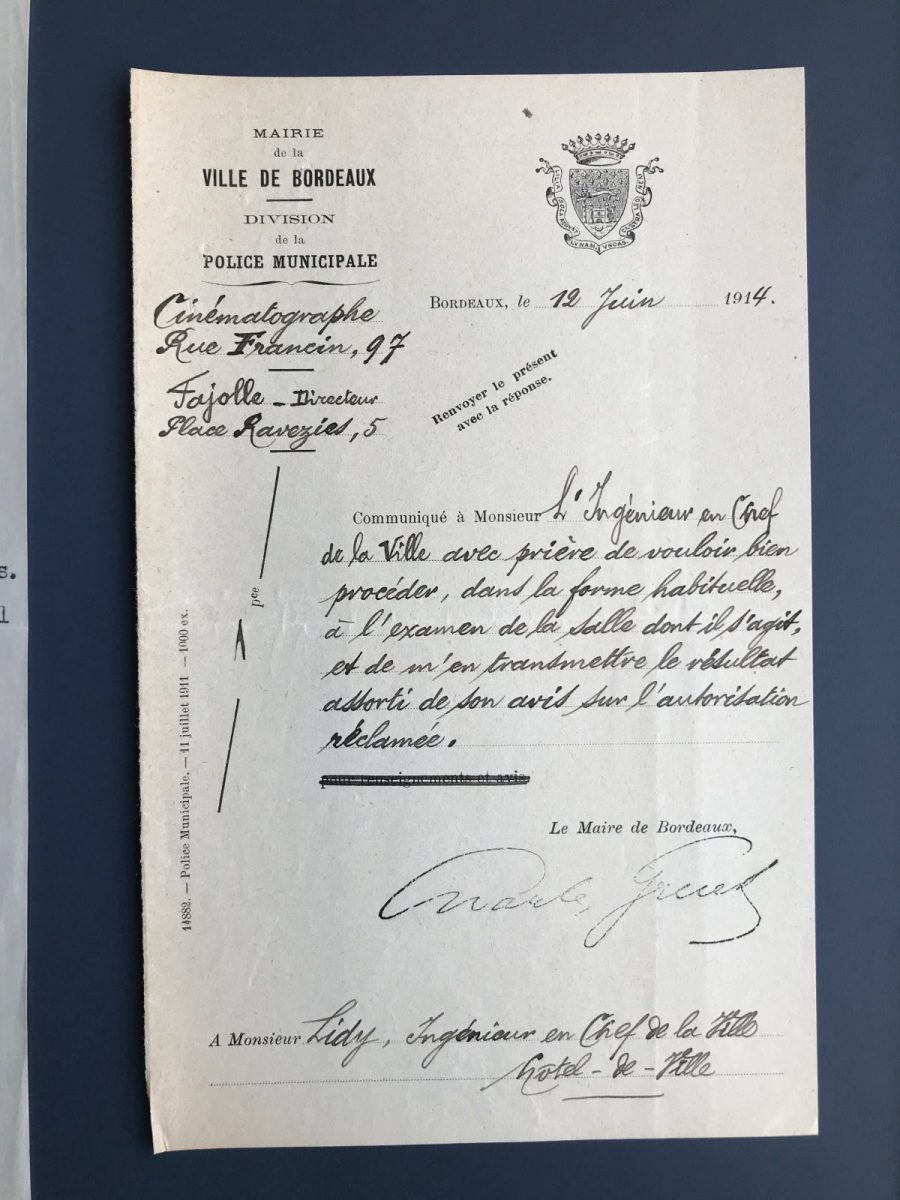 MAIRIE
de la
VILLE DE BORDEAUX
DIVISION
de la
POLICE MUNICIPALE
LILIA SOLA REGUNT LVNAM VNDAS CASTRA LEONEM
Cinématographe
Rue Francin, 97
Fajolle - Directeur
Place Ravezies, 5
BORDEAUX, le 12 Juin 1914.
Renvoyer le présent
avec la réponse.
Communiqué à Monsieur L'Ingénieur en Chef
de la Ville avec prière de vouloir bien
procéder, dans la forme habituelle,
à l'examen de la salle dont il s'agit,
et de m'en transmettre le résultat
assorti de son avis sur l'autorisation
réclamée.
pour renseignements et avis
pce
14882. — Police Municipale. — 11 juillet 1911 — 1000 ex.
Le Maire de Bordeaux,
Charles Gruet
A Monsieur Lidy, Ingénieur en Chef de la Ville
Hôtel-de-Ville
s.
l